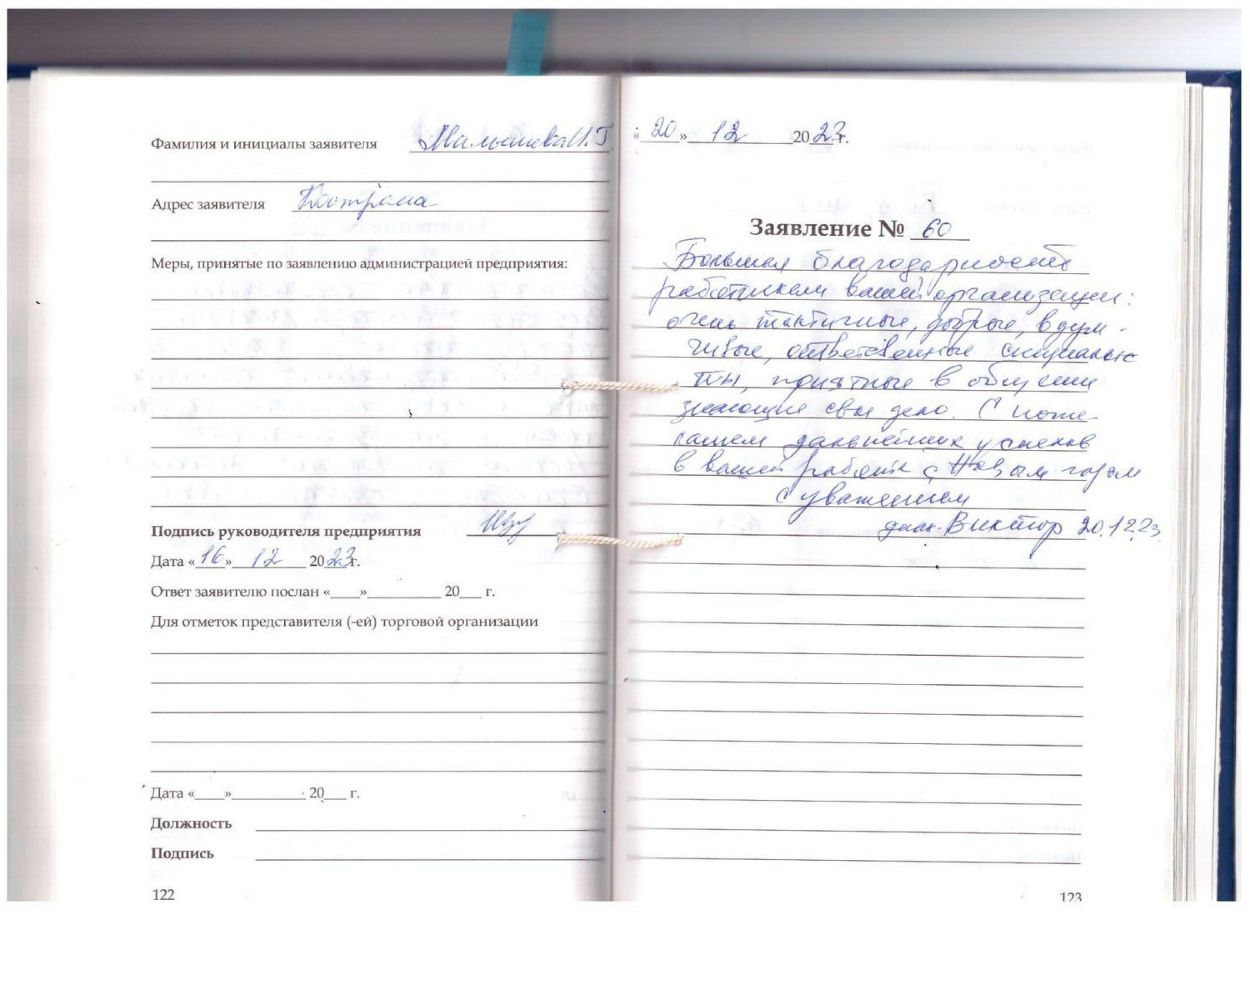 Фамилия и инициалы заявителя Малышева И.Г
Адрес заявителя Кострома
Меры, принятые по заявлению администрацией предприятия:
Подпись руководителя предприятия
Дата «16» 12 2023г.
Ответ заявителю послан «____»__________ 20___ г.
Для отметок представителя (-ей) торговой организации
Дата «____»__________ 20___ г.
Должность
Подпись
122
«20» 12 2023г.
Заявление № 60
Большая благодарность
работникам вашей организации:
очень тактичные, добрые, вдум-
чивые, ответственные специалис
ты, приятные в общении
знающие свое дело. С поже-
ланием дальнейших успехов
в вашей работе с Новым годом
С уважением
Виктор 20.12.23
123